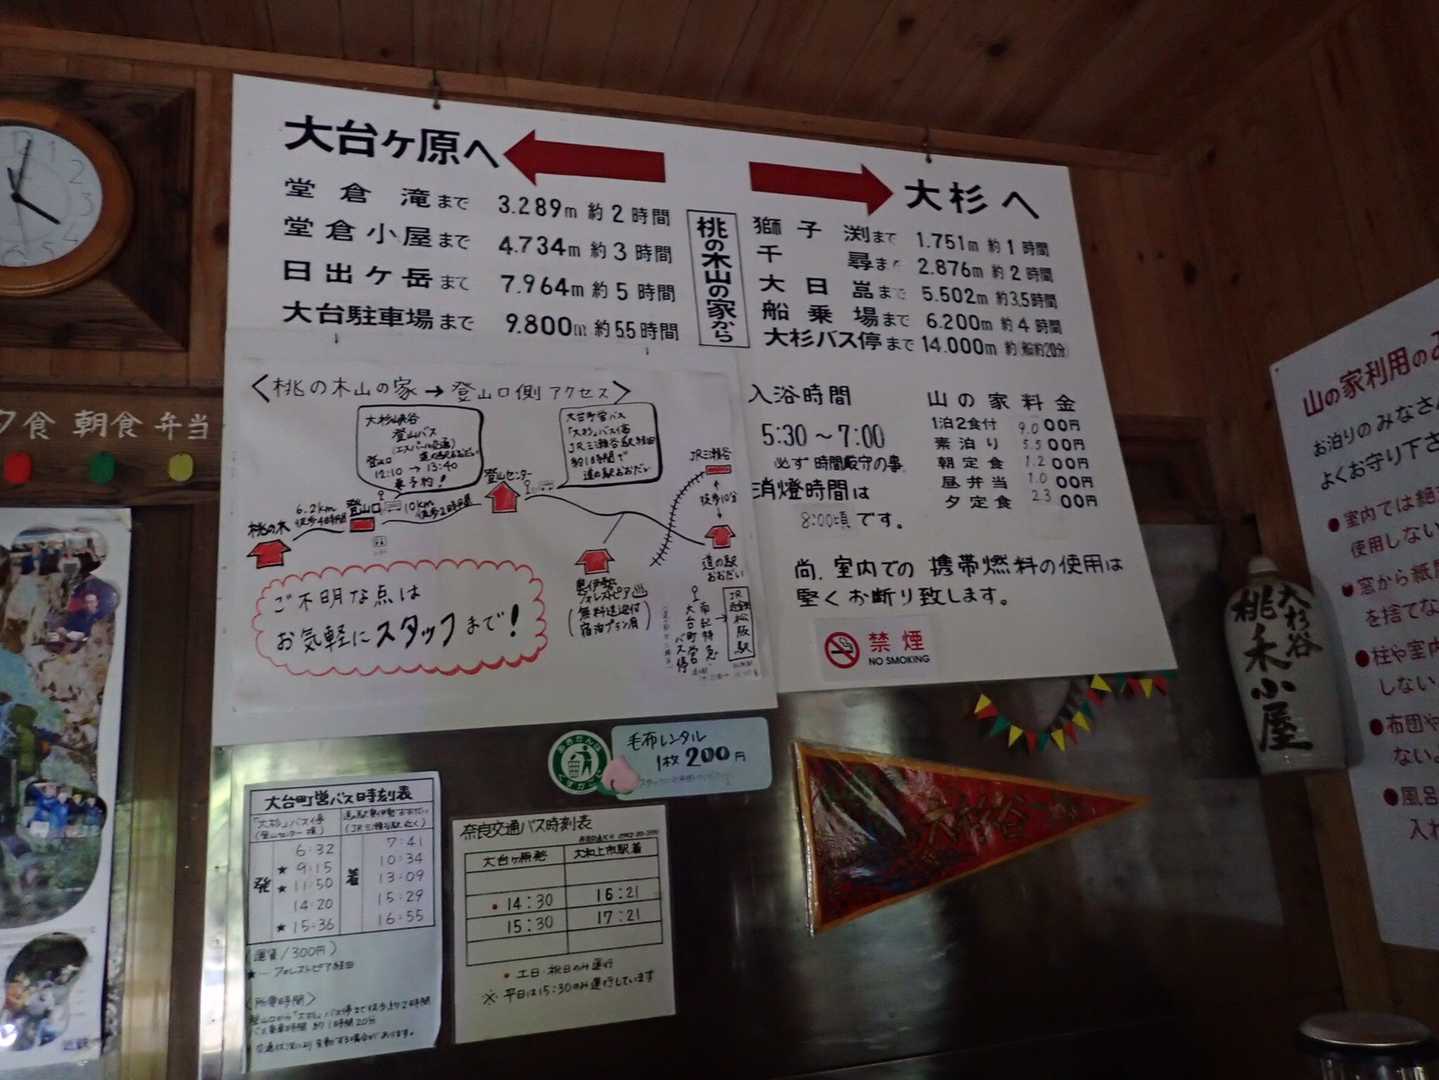 大台ヶ原へ
堂倉滝まで 3.289m 約2時間
堂倉小屋まで 4.734m 約3時間
日出ヶ岳まで 7.964m 約5時間
大台駐車場まで 9.800m 約5.5時間
桃の木山の家から
大杉へ
獅子渕まで 1.751m 約1時間
千尋まで 2.876m 約2時間
大日嵓まで 5.502m 約3.5時間
船乗場まで 6.200m 約4時間
大杉バス停まで 14.000m 約(船約20分)
<桃の木山の家→登山口側アクセス>
大杉峡谷
登山バス
(エスパール交通)
登山口
12:10 → 13:40
要予約!
大台町営バス
「大杉」バス停
JR三瀬谷駅経由
約1時間で
道の駅おおだい
桃の木
6.2km
徒歩4時間
登山口
10km
徒歩2時間
登山センター
JR三瀬谷
徒歩10分
道の駅
おおだい
奥伊勢
フォレストピア
(無料送迎付
宿泊プラン有)
大台町営
バス停
南紀特急
JR
松阪駅
ご不明な点は
お気軽にスタッフまで!
入浴時間
5:30~7:00
必ず時間厳守の事
消燈時間は
8:00頃です。
山の家料金
1泊2食付 9.000円
素泊り 5.500円
朝定食 1.200円
昼弁当 1.000円
夕定食 2300円
尚、室内での携帯燃料の使用は
堅くお断り致します。
禁煙
NO SMOKING
夕食 朝食 弁当
毛布レンタル
1枚 200円
大台町営バス時刻表
「大杉」バス停
(登山センター横)
道の駅奥伊勢おおだい
(JR三瀬谷駅近く)
発 着
6:32 7:41
★9:15 10:34
★11:50 13:09
14:20 15:29
★15:36 16:55
(運賃/300円)
★…フォレストピア経由
<所要時間>
登山口から「大杉」バス停まで徒歩約2時間
バス乗車時間 約1時間20分
奈良交通バス時刻表
大台ヶ原発 大和上市駅着
●14:30 16:21
15:30 17:21
● 土日・祝日のみ運行
※ 平日は15:30のみ運行しています
大杉谷
大杉谷
桃の木小屋
山の家利用の
お泊りのみなさん
よくお守り下さ
●室内では絶
使用しない
●窓から紙
を捨てな
●柱や室内
しない
●布団や
ない
●風呂
入れ